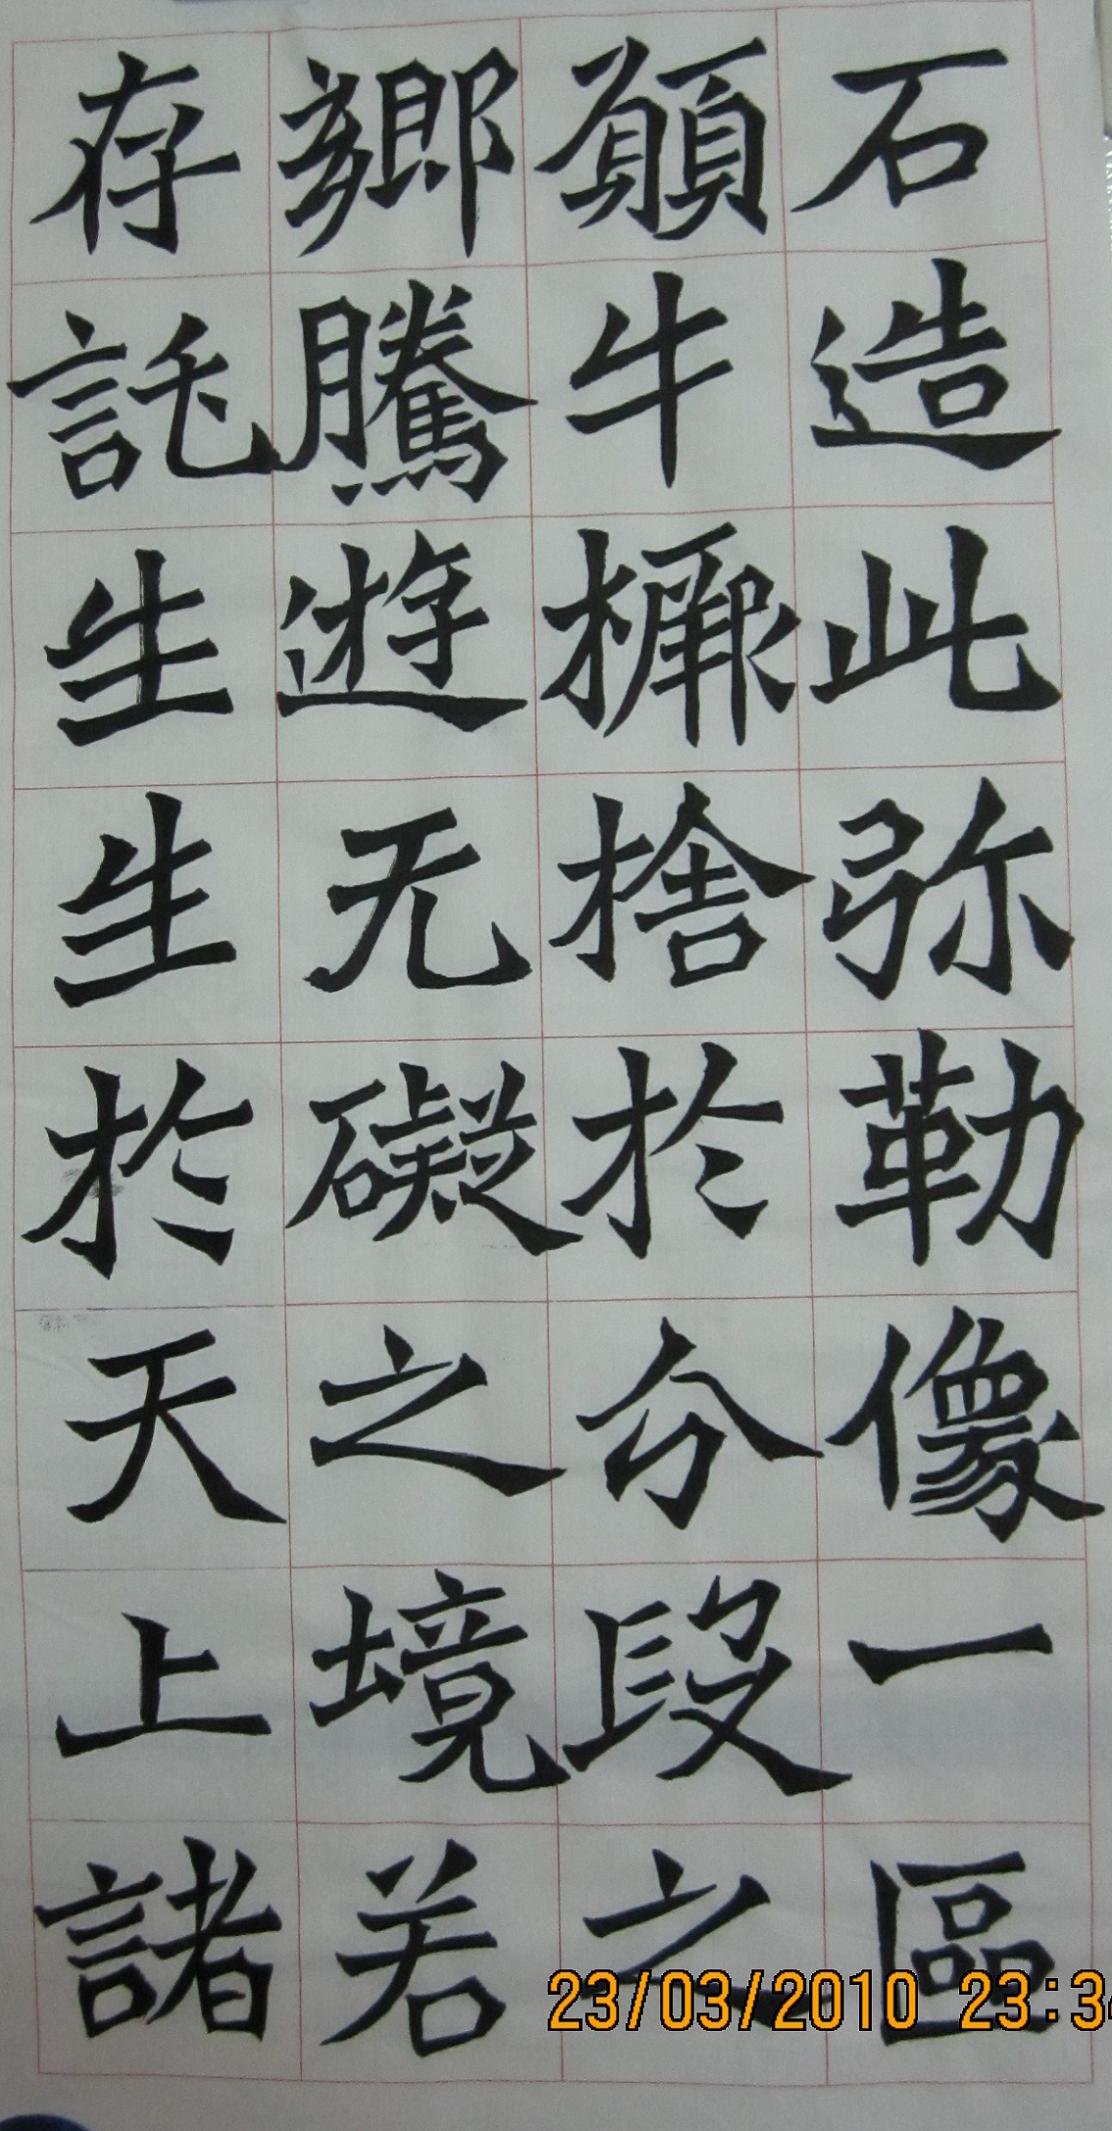 石造此弥勒像一區
願牛橛捨於分段之
鄉騰遊无礙之境若
存託生生於天上諸
23/03/2010 23:34